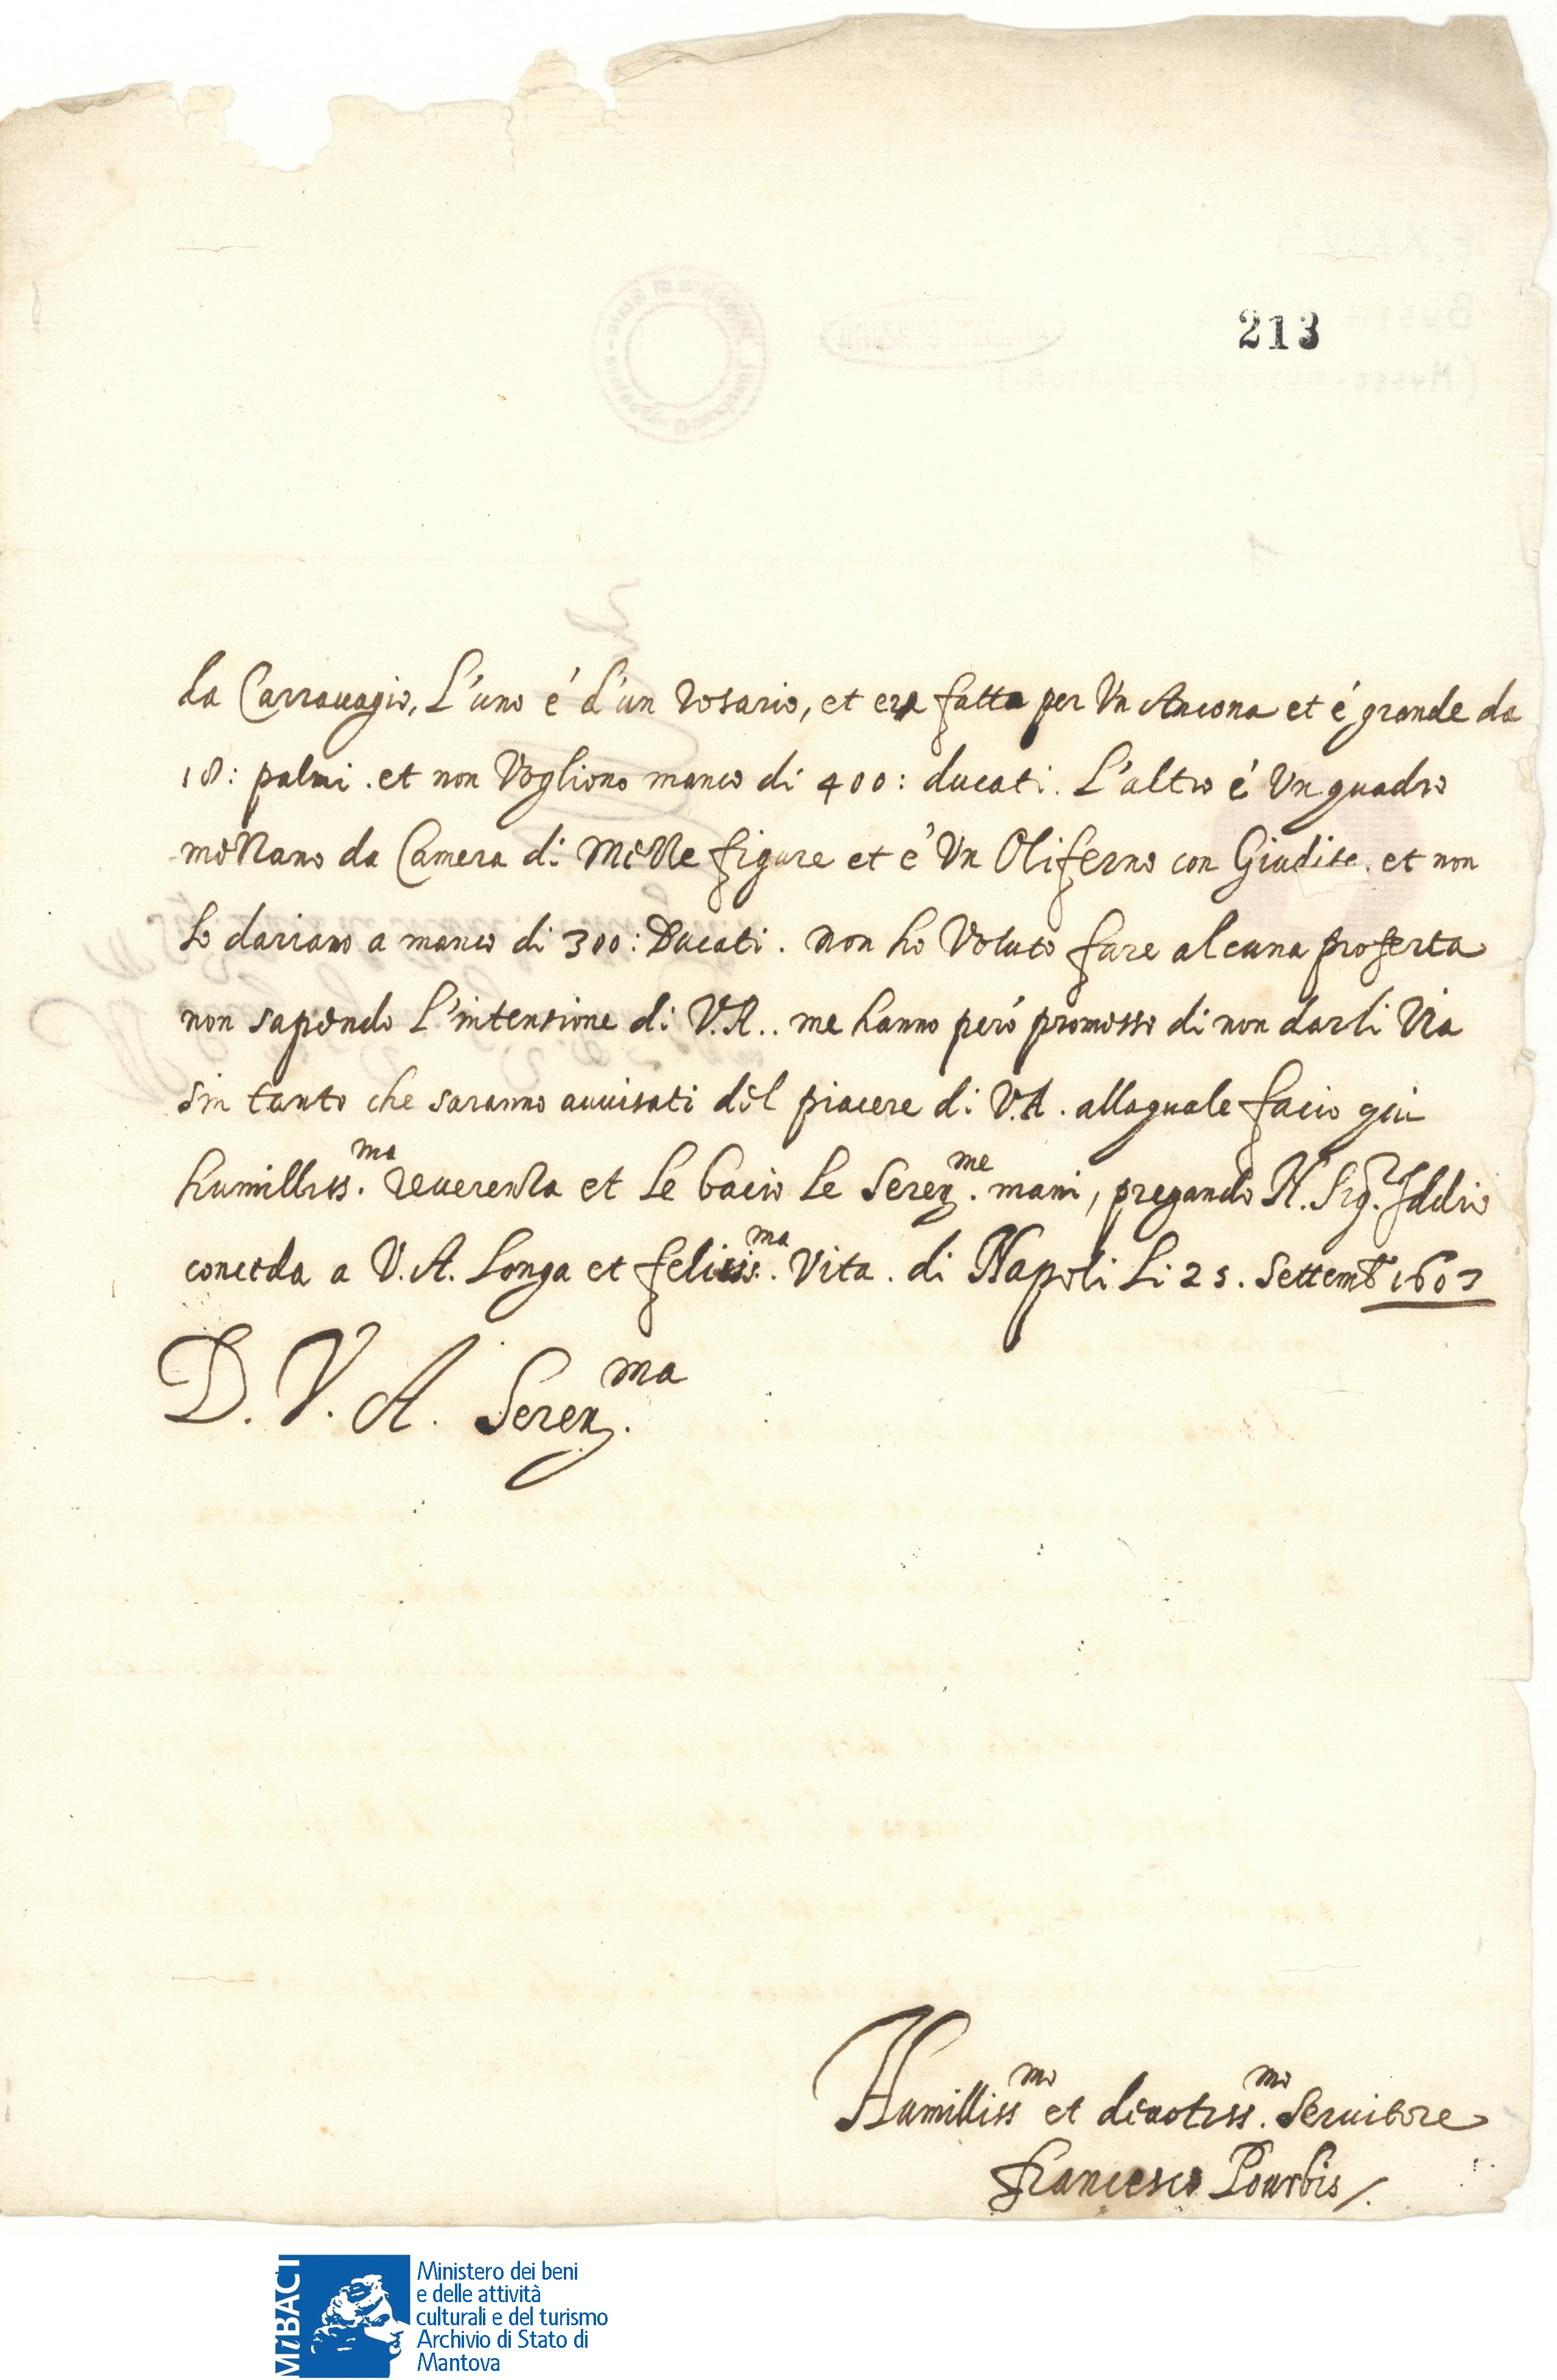 213
da Carrauagio, L'uno é d'un rosario, et era fatto per Vn Ancona et é grande da
18: palmi. et non Vogliono manco di 400: ducati. L'altro é Vn quadro
mezzano da Camera di mezze figure et é Vn Oliferno con Giudita. et non
lo dariano a manco di 300: Ducati. non ho Voluto fare alcuna proferta
non sapendo L'intenzione di V.A.. me hanno peró promesso di non darli Via
sin tanto che saranno auuisati del piacere di V.A. allaquale facio qui
humilliss.ma reuerenza et le bacio le Seren.me mani, pregando N. Sig.r Iddio
conceda a V.A. Longa et feliciss.ma Vita. di Napoli Li 25. Settemb 1607
D. V. A. Seren.ma
Humilliss.mo et deuotiss.mo Seruitore
francesco Pourbis /.
MiBACT
Ministero dei beni
e delle attività
culturali e del turismo
Archivio di Stato di
Mantova